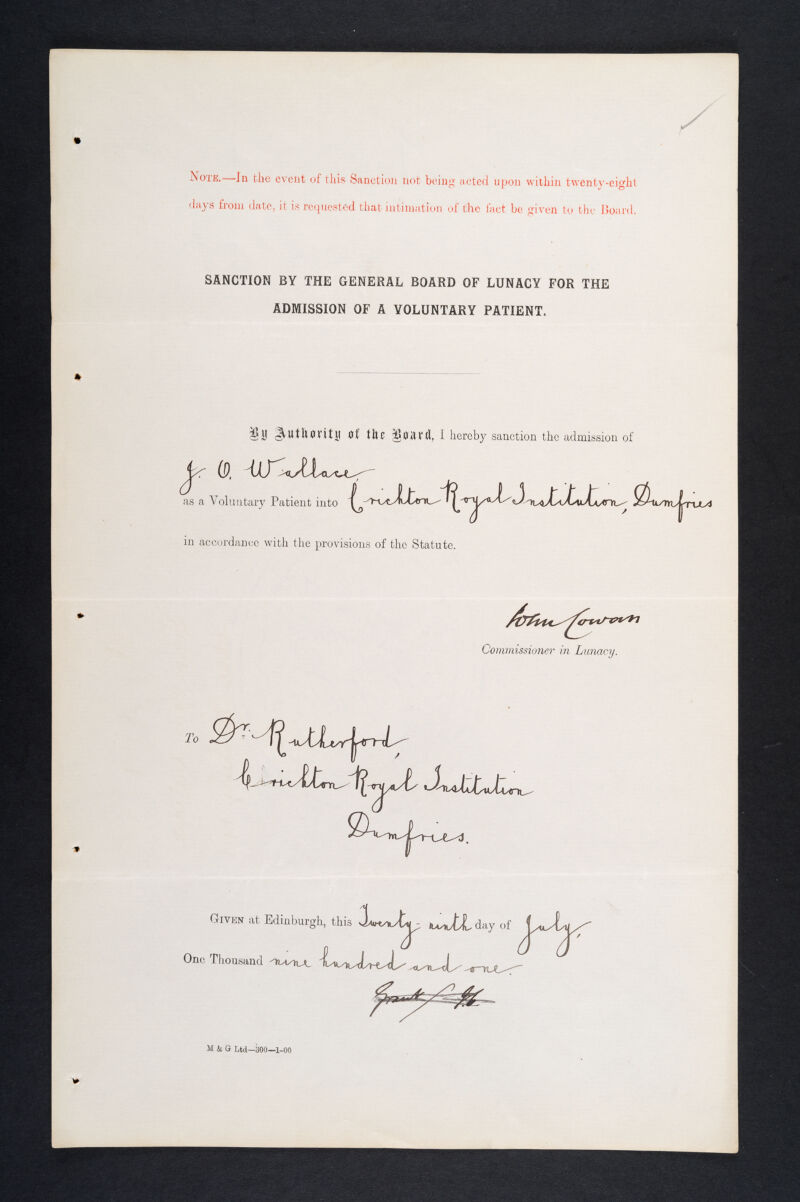 NOTE.—In the event of this Sanction not being acted upon within twenty-eight
days from date, it is requested that intimation of the fact be given to the Board.
SANCTION BY THE GENERAL BOARD OF LUNACY FOR THE
ADMISSION OF A VOLUNTARY PATIENT.
By Authority of the Board, I hereby sanction the admission of
J. O. Wallace
as a Voluntary Patient into Crichton Royal Institution, Dumfries
in accordance with the provisions of the Statute.
John Cowan
Commissioner in Lunacy.
To Dr. Rutherford,
Crichton Royal Institution
Dumfries.
GIVEN at Edinburgh, this Twenty-ninth day of July,
One Thousand nine hundred and one.
M & G Ltd—300—1-00